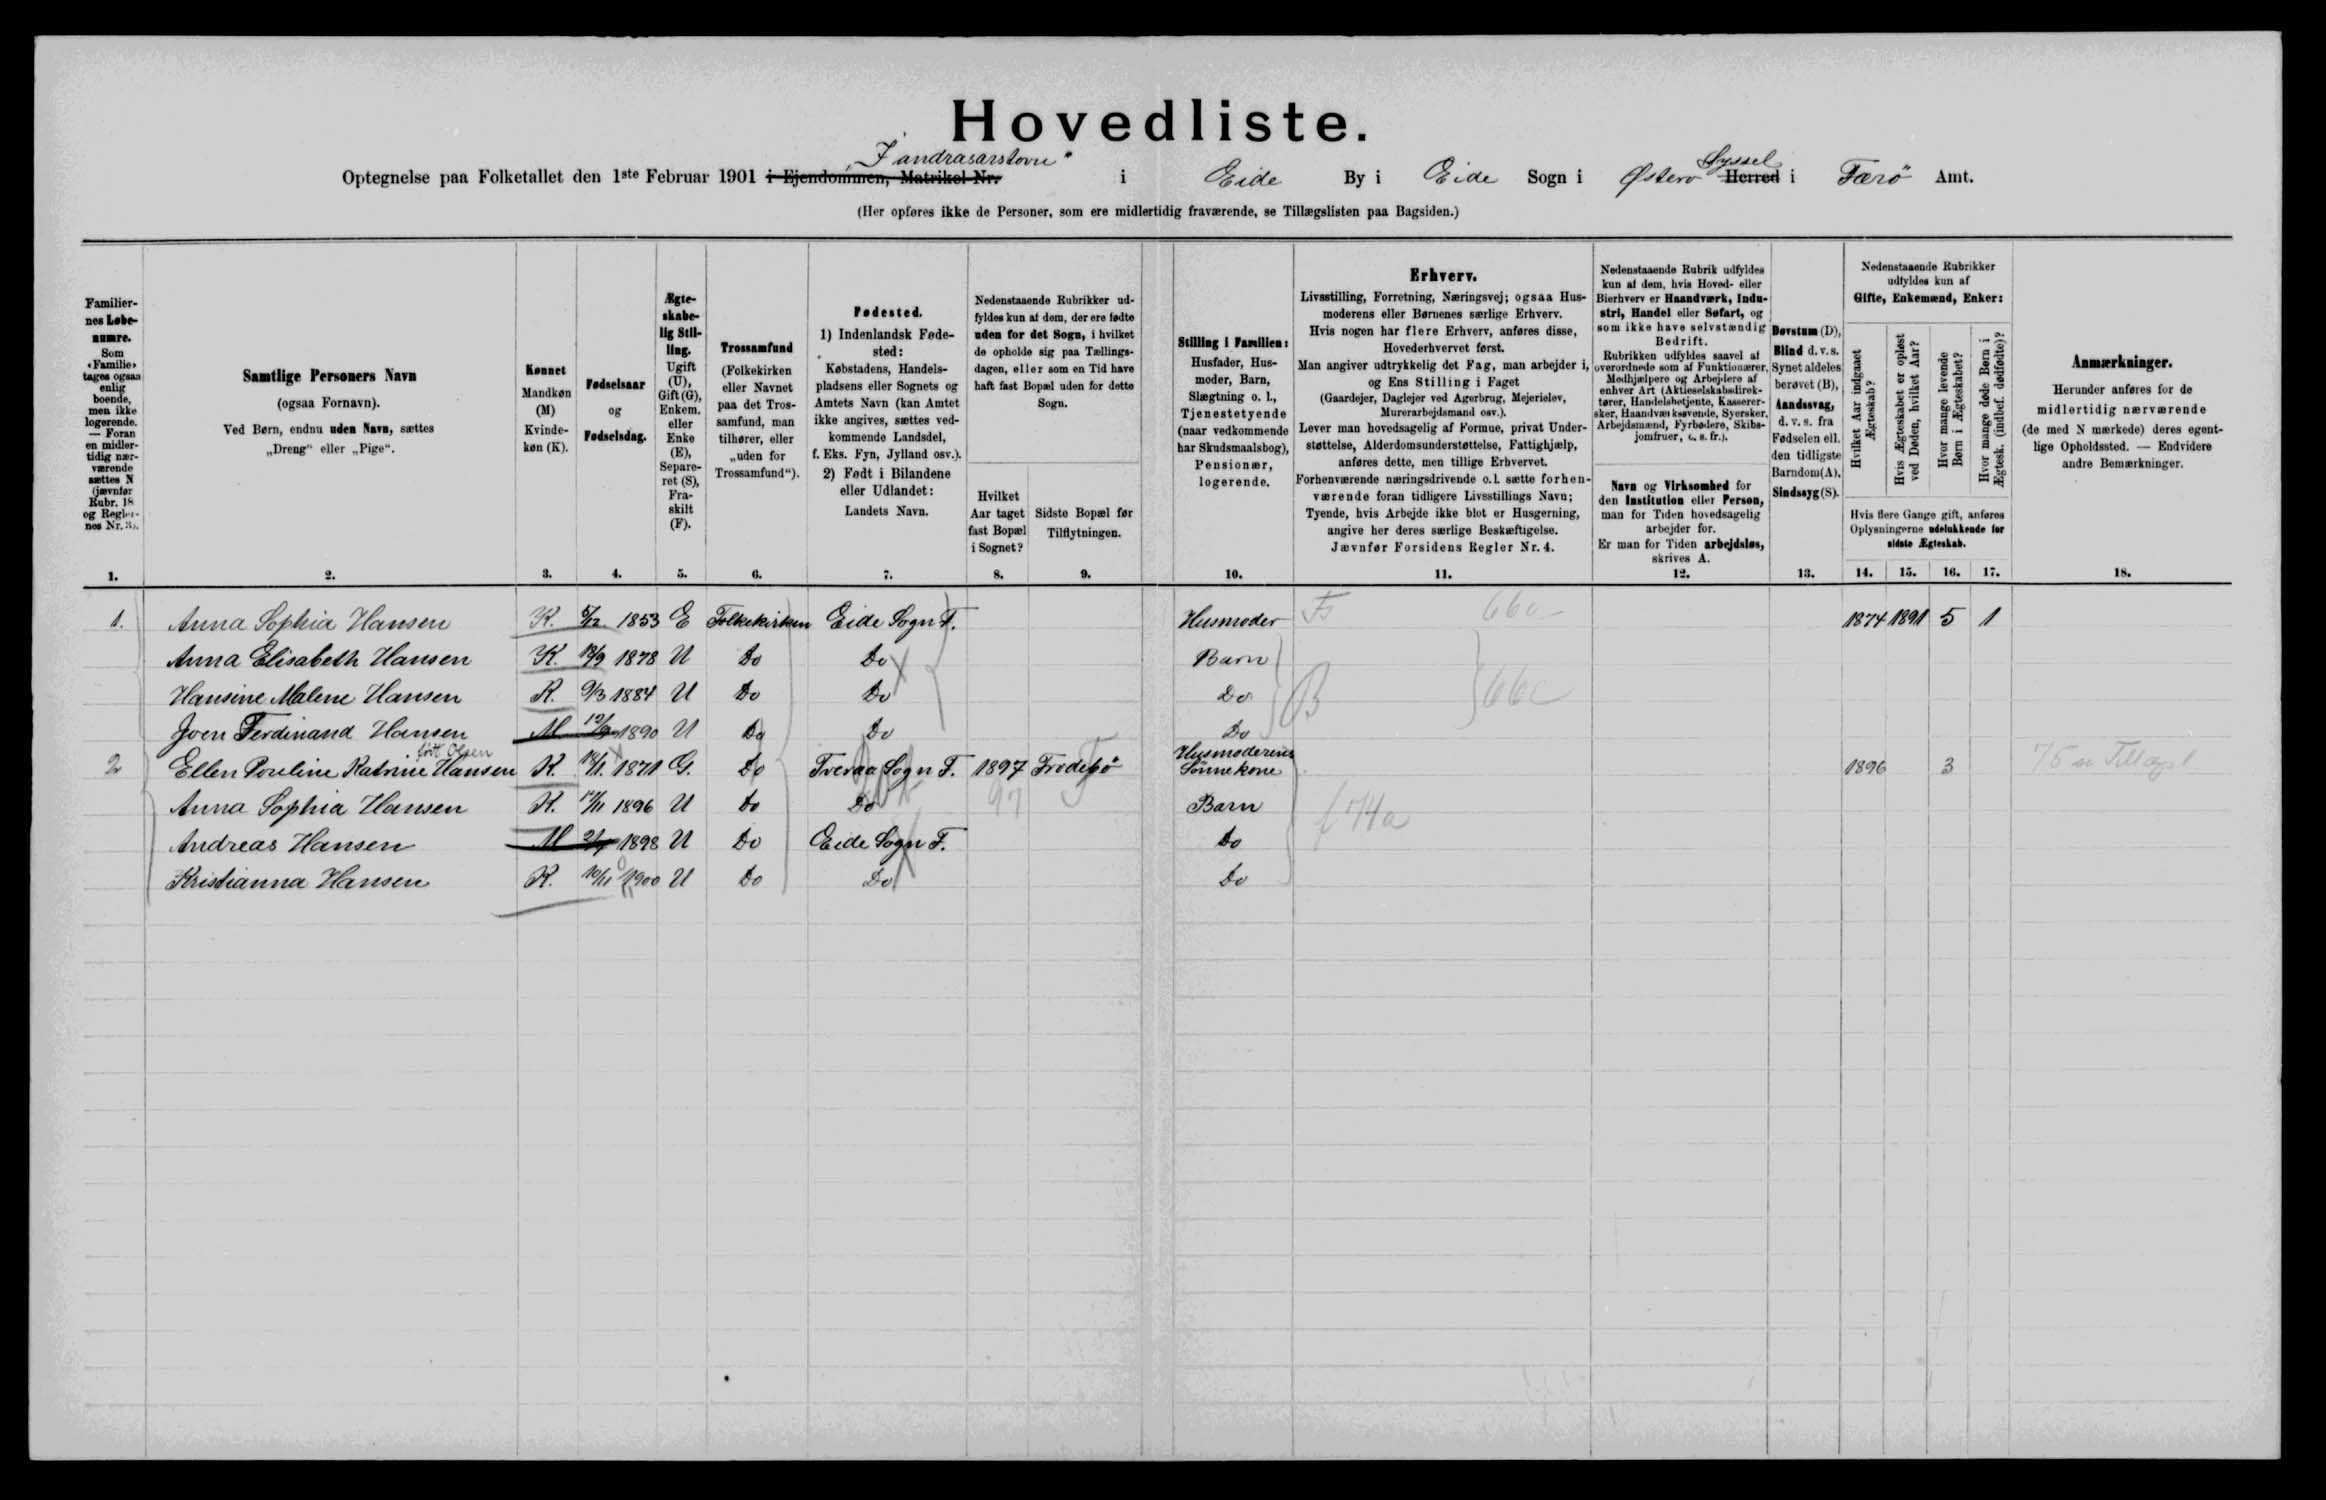 Hovedliste.
Optegnelse paa Folketallet den 1ste Februar 1901 i Ejendommen, Matrikel Nr. "I andrasarstovu" i Eide By i Eide Sogn i Østerø Herred Syssel i Færö Amt.
(Her opføres ikke de Personer, som ere midlertidig fraværende, se Tillægslisten paa Bagsiden.)
Familiernes Løbenumre. Som «Familie» tages ogsaa enlig boende, men ikke logerende. — Foran en midlertidig nærværende sættes N (jævnfør Rubr. 18 og Reglernes Nr. 3).
Samtlige Personers Navn (ogsaa Fornavn). Ved Børn, endnu uden Navn, sættes „Dreng" eller „Pige".
Kønnet Mandkøn (M) Kvindekøn (K).
Fødselsaar og Fødselsdag.
Ægteskabelig Stilling. Ugift (U), Gift (G), Enkem. eller Enke (E), Separeret (S), Fraskilt (F).
Trossamfund (Folkekirken eller Navnet paa det Trossamfund, man tilhører, eller „uden for Trossamfund").
Fødested. 1) Indenlandsk Fødested: Købstadens, Handelspladsens eller Sognets og Amtets Navn (kan Amtet ikke angives, sættes vedkommende Landsdel, f. Eks. Fyn, Jylland osv.). 2) Født i Bilandene eller Udlandet: Landets Navn.
Nedenstaaende Rubrikker udfyldes kun af dem, der ere fødte uden for det Sogn, i hvilket de opholde sig paa Tællingsdagen, eller som en Tid have haft fast Bopæl uden for dette Sogn.
Hvilket Aar taget fast Bopæl i Sognet?
Sidste Bopæl før Tilflytningen.
Stilling i Familien: Husfader, Husmoder, Barn, Slægtning o. l., Tjenestetyende (naar vedkommende har Skudsmaalsbog), Pensionær, logerende.
Erhverv.
Livsstilling, Forretning, Næringsvej; ogsaa Husmoderens eller Børnenes særlige Erhverv.
Hvis nogen har flere Erhverv, anføres disse, Hovederhvervet først.
Man angiver udtrykkelig det Fag, man arbejder i, og Ens Stilling i Faget
(Gaardejer, Daglejer ved Agerbrug, Mejerielev, Murerarbejdsmand osv.).
Lever man hovedsagelig af Formue, privat Understøttelse, Alderdomsunderstøttelse, Fattighjælp, anføres dette, men tillige Erhvervet.
Forhenværende næringsdrivende o. l. sætte forhenværende foran tidligere Livsstillings Navn;
Tyende, hvis Arbejde ikke blot er Husgerning, angive her deres særlige Beskæftigelse.
Jævnfør Forsidens Regler Nr. 4.
Nedenstaaende Rubrik udfyldes kun af dem, hvis Hoved- eller Bierhverv er Haandværk, Industri, Handel eller Søfart, og som ikke have selvstændig Bedrift.
Rubrikken udfyldes saavel af overordnede som af Funktionærer, Medhjælpere og Arbejdere af enhver Art (Aktieselskabsdirektører, Handelsbetjente, Kassérersker, Haandværkssvende, Syersker, Arbejdsmænd, Fyrbødere, Skibsjomfruer, o. s. fr.).
Navn og Virksomhed for den Institution eller Person, man for Tiden hovedsagelig arbejder for.
Er man for Tiden arbejdsløs, skrives A.
Døvstum (D), Blind d. v. s. Synet aldeles berøvet (B), Aandssvag, d. v. s. fra Fødselen ell. den tidligste Barndom (A), Sindssyg (S).
Nedenstaaende Rubrikker udfyldes kun af Gifte, Enkemænd, Enker:
Hvilket Aar indgaaet Ægteskab?
Hvis Ægteskabet er opløst ved Døden, hvilket Aar?
Hvor mange levende Børn i Ægteskabet?
Hvor mange døde Børn i Ægtesk. (indbef. dødfødte)?
Hvis flere Gange gift, anføres Oplysningerne udelukkende for sidste Ægteskab.
Anmærkninger. Herunder anføres for de midlertidig nærværende (de med N mærkede) deres egentlige Opholdssted. — Endvidere andre Bemærkninger.
1. 2. 3. 4. 5. 6. 7. 8. 9. 10. 11. 12. 13. 14. 15. 16. 17. 18.
1. Anna Sophia Hansen K. 5/12 1853 E Folkekirken Eide Sogn F. Husmoder 66c 1874 1891 5 1
Anna Elisabeth Hansen K. 18/9 1878 U Do Do Barn
Hansine Malene Hansen K. 9/3 1884 U Do Do Do B 66c
Joen Ferdinand Hansen M 1890 U Do Do Do
2 Ellen Pouline Katrine Hansen født Olsen K. 1871 G. Do Tveraa Sogn F. 1897 Frodebö Husmoderens Sönnekone 1896 3
Anna Sophia Hansen K. 17/11 1896 U Do Do 97 Barn f 174a
Andreas Hansen M 1898 U Do Eide Sogn F. Do
Kristianna Hansen K. 10/11 1900 U Do Do Do